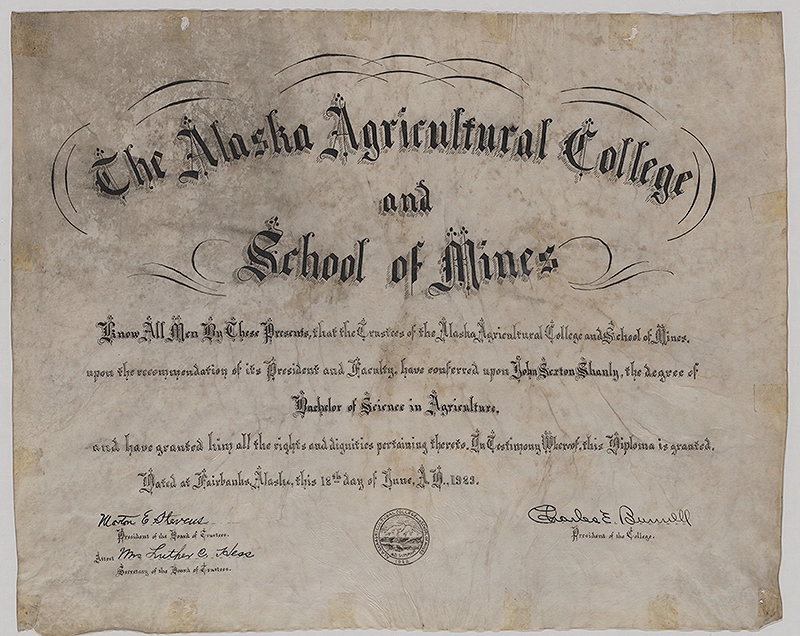 The Alaska Agricultural College
and
School of Mines
Know All Men By These Presents, that the Trustees of the Alaska Agricultural College and School of Mines,
upon the recommendation of its President and Faculty, have conferred upon John Sexton Shanly, the degree of
Bachelor of Science in Agriculture,
and have granted him all the rights and dignities pertaining thereto. In Testimony Whereof, this Diploma is granted.
Dated at Fairbanks, Alaska, this 18th day of June, A.D., 1923.
Morton E. Stevens
President of the Board of Trustees.
Attest Mrs Luther C. Hess
Secretary of the Board of Trustees.
Charles E. Bunnell
President of the College.